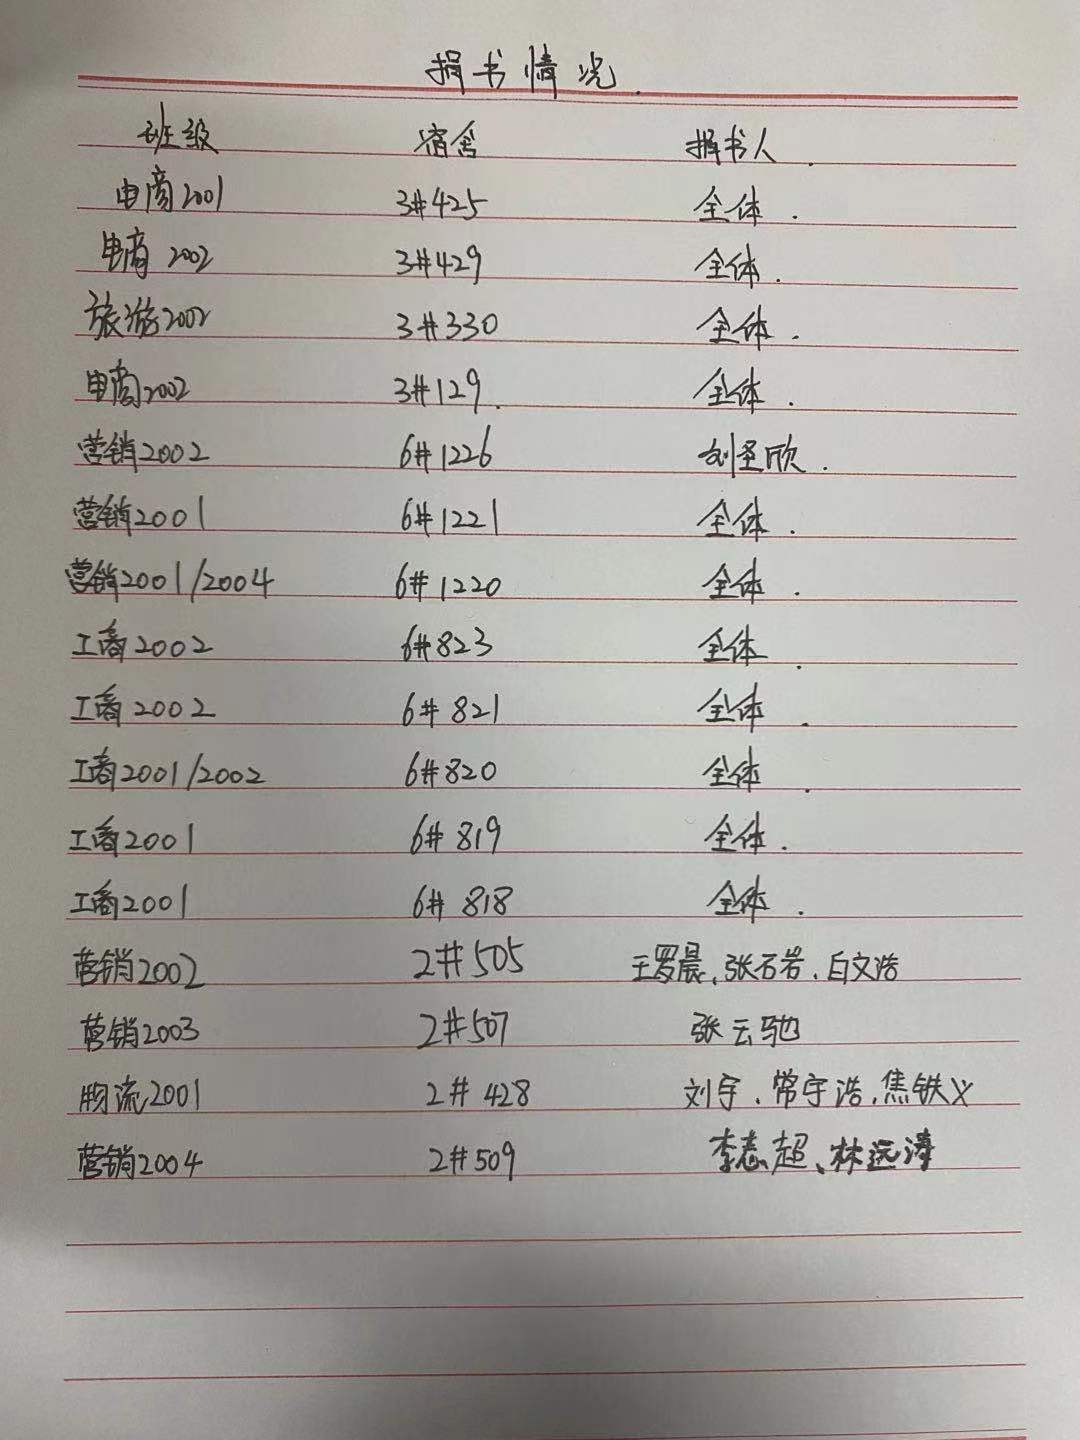 捐书情况.
班级 宿舍 捐书人.
电商2001 3#425 全体.
电商2002 3#429 全体.
旅游2002 3#330 全体.
电商2002 3#129. 全体.
营销2002 6#1226 刘圣欣.
营销2001 6#1221 全体.
营销2001/2004 6#1220 全体.
工商2002 6#823 全体.
工商2002 6#821 全体.
工商2001/2002 6#820 全体.
工商2001 6#819 全体.
工商2001 6#818 全体.
营销2002 2#505 王罗晨、张石岩、白文浩
营销2003 2#507 张云驰
物流2001 2#428 刘宇、常宇浩、焦铁义
营销2004 2#509 李志超、林远涛